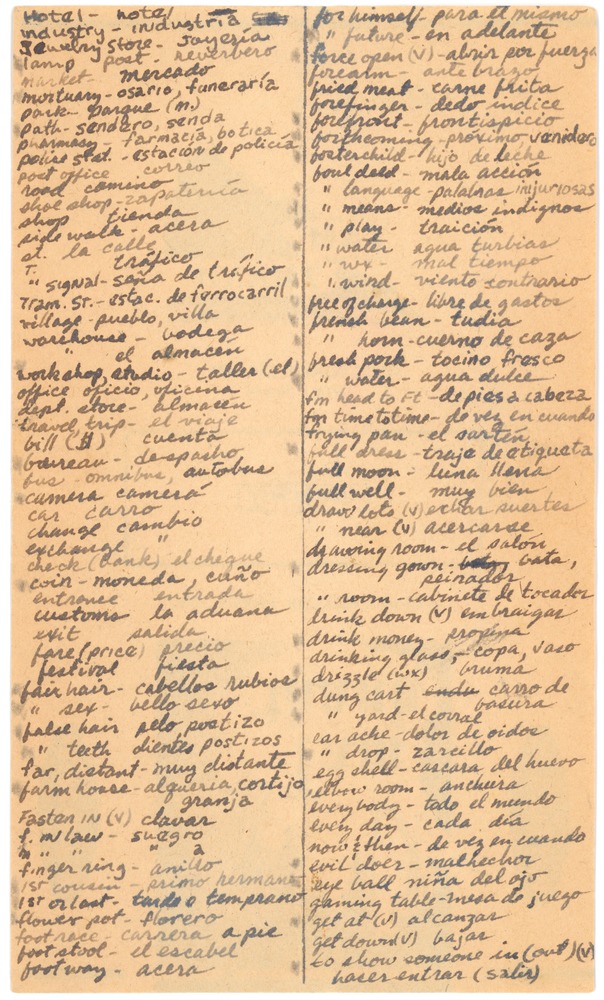 Hotel - hotel
industry - industria
Jewelry store - Joyería
lamp post - reverbero
market - mercado
mortuary - osario, funeraría
park - parque (m.)
path - sendero, senda
pharmacy - farmacía, botica
police stat. - estación de policía
post office correo
road camino
shoe shop - zapatería
shop tienda
side walk - acera
st. la calle
T. tráfico
" signal - seña de tráfico
Tram. St. - estac. de ferrocarril
village - pueblo, villa
warehouse - bodega
" el almacén
workshop, studio - taller (el)
office oficio, oficina
dept. store - almacén
travel, trip - el viaje
bill ($) cuenta
baureau - despasho
bus - omnibus, autobus
camera camerá
car carro
change cambio
exchange "
check (bank) el cheque
coin - moneda, cuño
entrance entrada
customs la aduana
exit salida
fare (price) precio
festival fiesta
fair hair - cabellos rubios
" sex - bello sexo
false hair pelo postizo
" teeth dientes postizos
far, distant - muy distante
farm house - alqueria, cortijo
granja
Fasten IN (v) clavar
f. in law - suegro
m " " " a
finger ring - anillo
1st cousin - primo hermano
1st or last - tarde o temprano
flower pot - florero
foot race - carrera a pie
foot stool - el escabel
footway - acera
for himself - para el mismo
" future - en adelante
force open (v) - abrir por fuerza
forearm - ante brazo
fried meat - carne frita
forefinger - dedo indice
forefront - frontispicio
forthcoming - próximo, venidero
fosterchild - hijo de leche
foul deed - mala acción
" language - palabras injuriosas
" means - medios indignos
" play - traición
" water agua turbias
" wx - mal tiempo
" wind - viento contrario
free of charge - libre de gastos
french bean - tudia
" horn - cuerno de caza
fresh pork - tocino fresco
" water - agua dulce
fm head to FT - de pies a cabeza
fm time to time - de vez en cuando
frying pan - el sartén
full dress - traje de etiqueta
full moon - luna llena
full well - muy bien
draw lots (v) echar suertes
" near (v) acercarse
drawing room - el salón
dressing gown - bata,
peinador
" room - cabinete de tocador
drink down (v) embraigar
drink money - propina
drinking glass, - copa, vaso
drizzle (wx) bruma
dung cart carro de
basura
" yard - el corral
ear ache - dolor de oidos
" drop - zarcillo
egg shell - cascara del huevo
elbow room - anchura
everybody - todo el mundo
every day - cada día
now & then - de vez en cuando
evil doer - malhechor
eye ball niña del ojo
gaming table - mesa de juego
get at (v) alcanzar
get down (v) bajar
to show someone in (out) (v)
hacer entrar (salir)